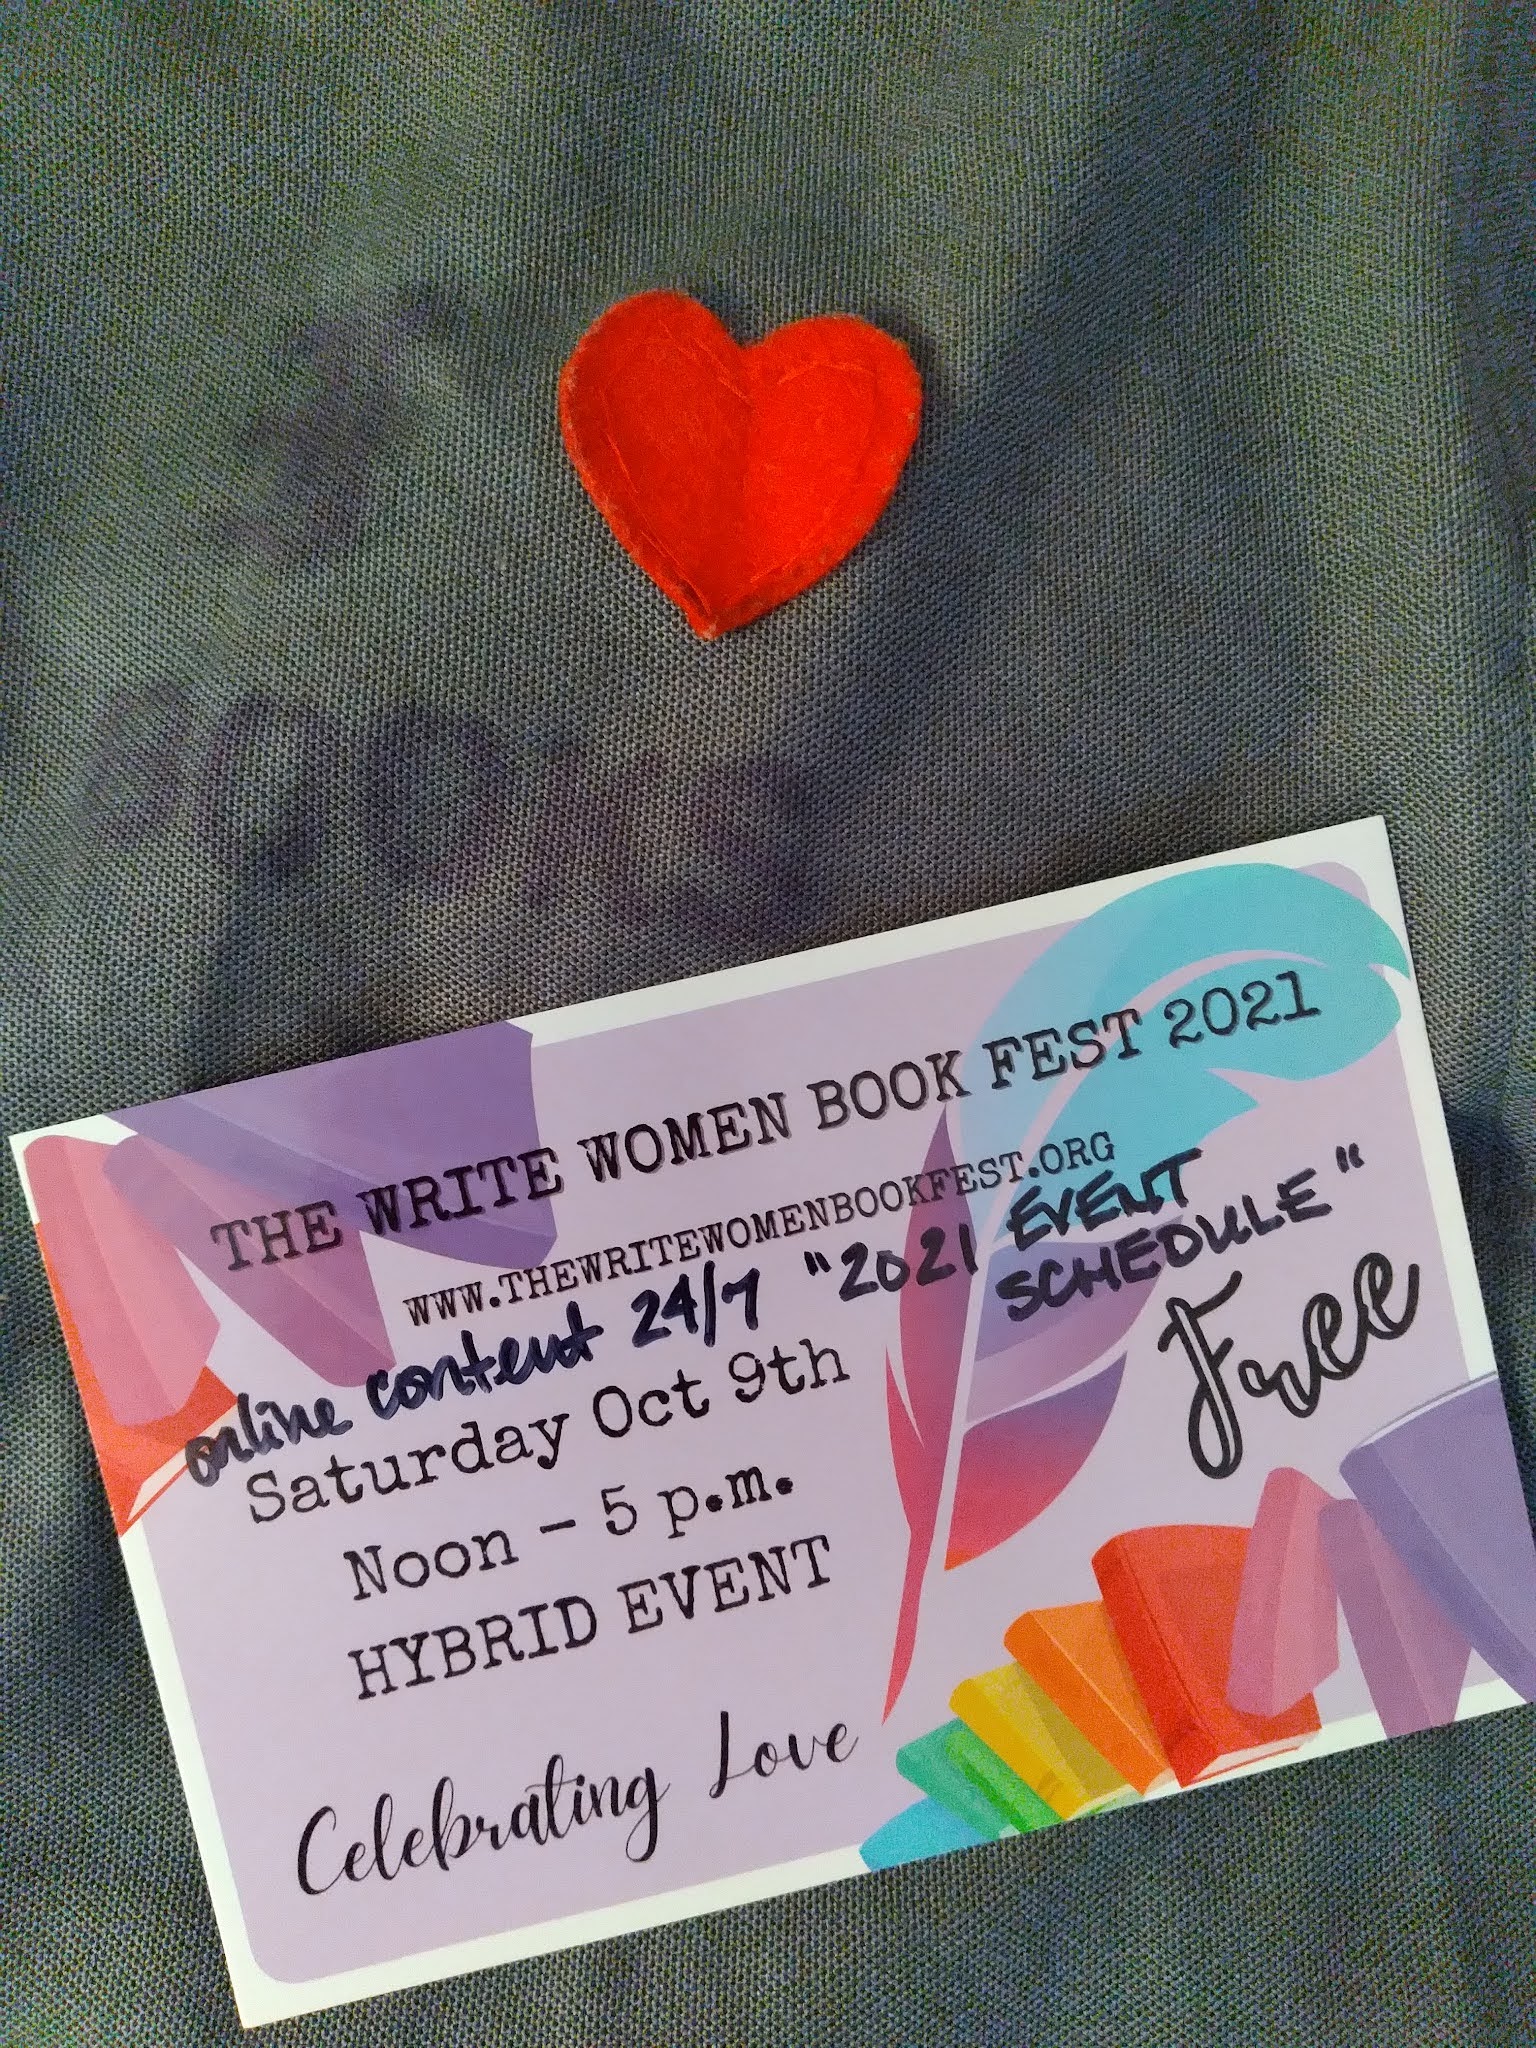 THE WRITE WOMEN BOOK FEST 2021
WWW.THEWRITEWOMENBOOKFEST.ORG
online content 24/7 "2021 EVENT
SCHEDULE"
Saturday Oct 9th
Free
Noon – 5 p.m.
HYBRID EVENT
Celebrating Love